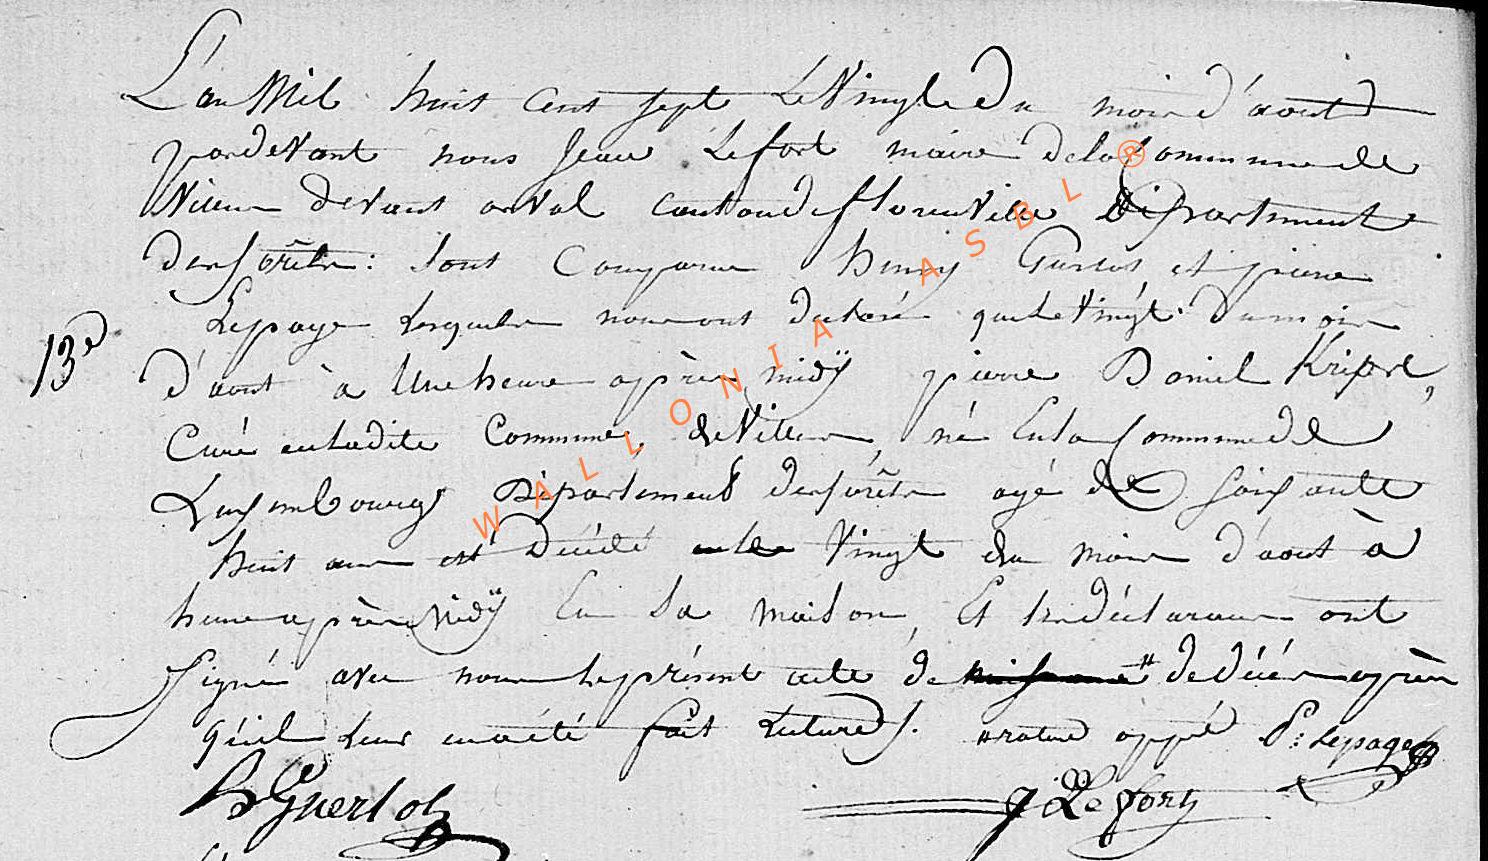 L'an Mil huit cent sept Le Vingt Du mois d'aout
pardevant nous Jean Lefort maire dela Commune de
Villers devant orval canton de florenville Département
des forêts : sont Comparu henry Guerlot et pierre
Lepage Lesquels nous ont declaré que le Vingt Du mois
13e
d'aout à Une heure après midÿ pierre Daniel
Curé en ladite Commune, de Villers, né En la Commune de
Luxembourg Département des forêts agé de soixante
huit ans est Décédé Vingt du mois d'aout à
heure après midÿ En Sa maison, Et les déclarans ont
Signés avec nous le présent acte de naissance " de décés après
qu'il Leur en a été fait Lecture. " rature appé P: Lepage
H Guerlot
J Le fort
WALLONIA ASBL ®